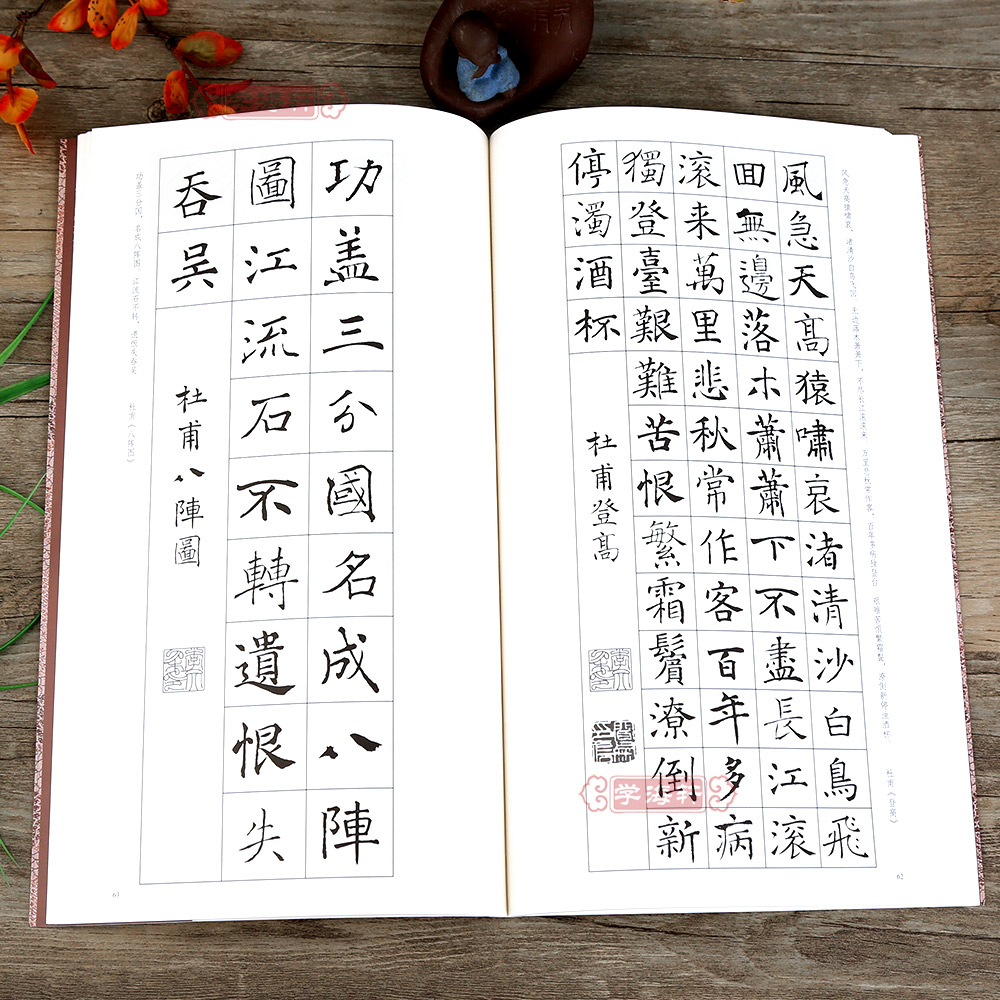 风急天高猿啸哀，渚清沙白鸟飞回。无边落木萧萧下，不尽长江滚滚来。万里悲秋常作客，百年多病独登台。艰难苦恨繁霜鬓，潦倒新停浊酒杯。
杜甫《登高》
風急天髙猿嘯哀渚清沙白鳥飛
囬無邊落木蕭蕭下不盡長江滚
滚来萬里悲秋常作客百年多病
獨登臺艱難苦恨繁霜鬢潦倒新
停濁酒杯
杜甫登髙
62
功盖三分國名成八陣
圖江流石不轉遺恨失
吞吴
杜甫八陣圖
功盖三分国，名成八阵图。江流石不转，遗恨失吞吴。
杜甫《八阵图》
63
学海轩